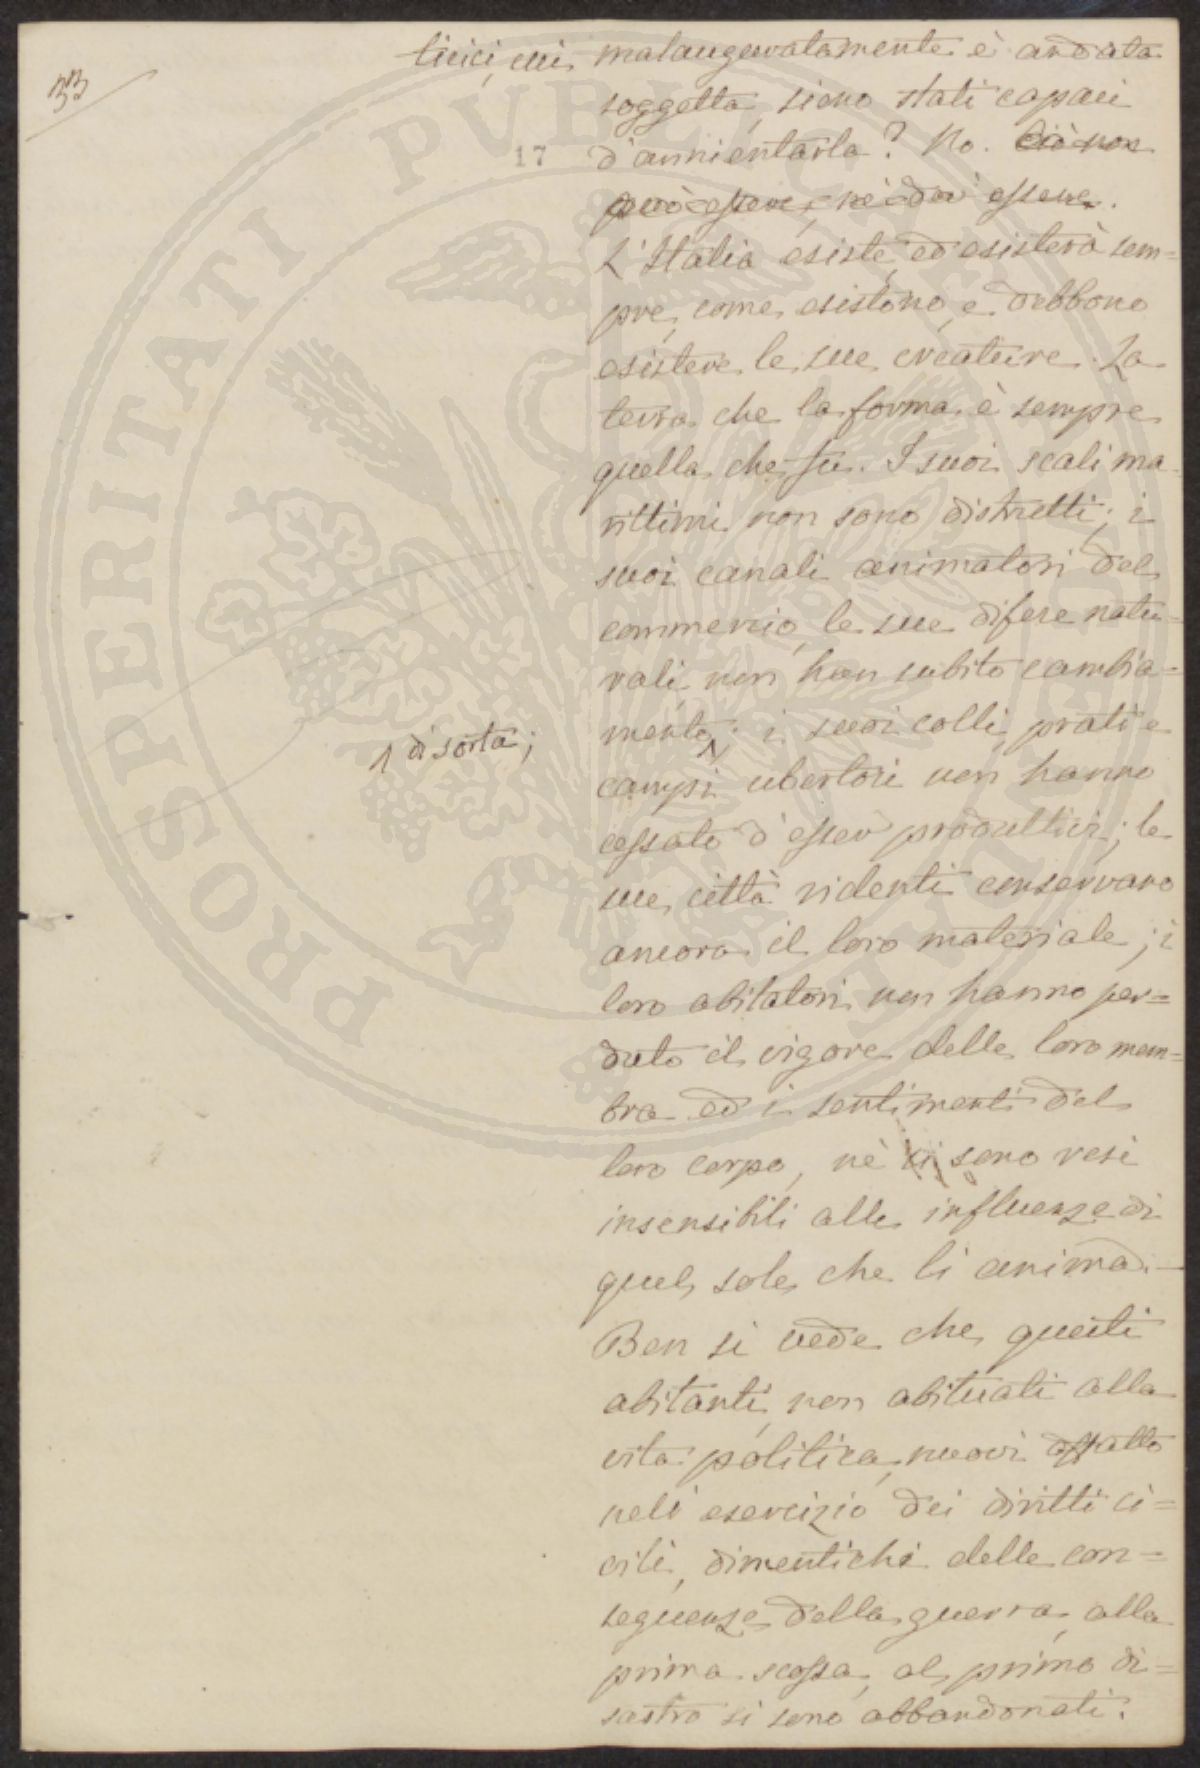 33
17
litici, cui malauguratamente è andata
soggetta, sieno stati capaci
d'annientarla? No. Ciò non
può essere, nè dev'essere.
L'Italia esiste, ed esisterà sem=
pre, come esistono, e debbono
esistere le sue creature. La
terra che la forma è sempre
quella che fu. I suoi scali ma=
rittimi non sono distrutti; i
suoi canali animatori del
commercio, le sue difese natu=
rali non han subito cambia=
mento; i suoi colli, prati e
^ di sorta;
campi ubertosi non hanno
cessato d'esser produttivi; le
sue città ridenti conservano
ancora il loro materiale; i
loro abitatori non hanno per=
duto il vigore delle loro mem=
bra ed i sentimenti del
loro corpo, nè si sono resi
insensibili alle influenze di
quel sole che li anima. —
Ben si vede che questi
abitanti, non abituati alla
vita politica, nuovi affatto
nell'esercizio dei diritti ci=
vili, dimentichi delle con=
seguenze della guerra, alla
prima scossa, al primo di=
sastro si sono abbandonati.
PROSPERITATI PUBLICAE